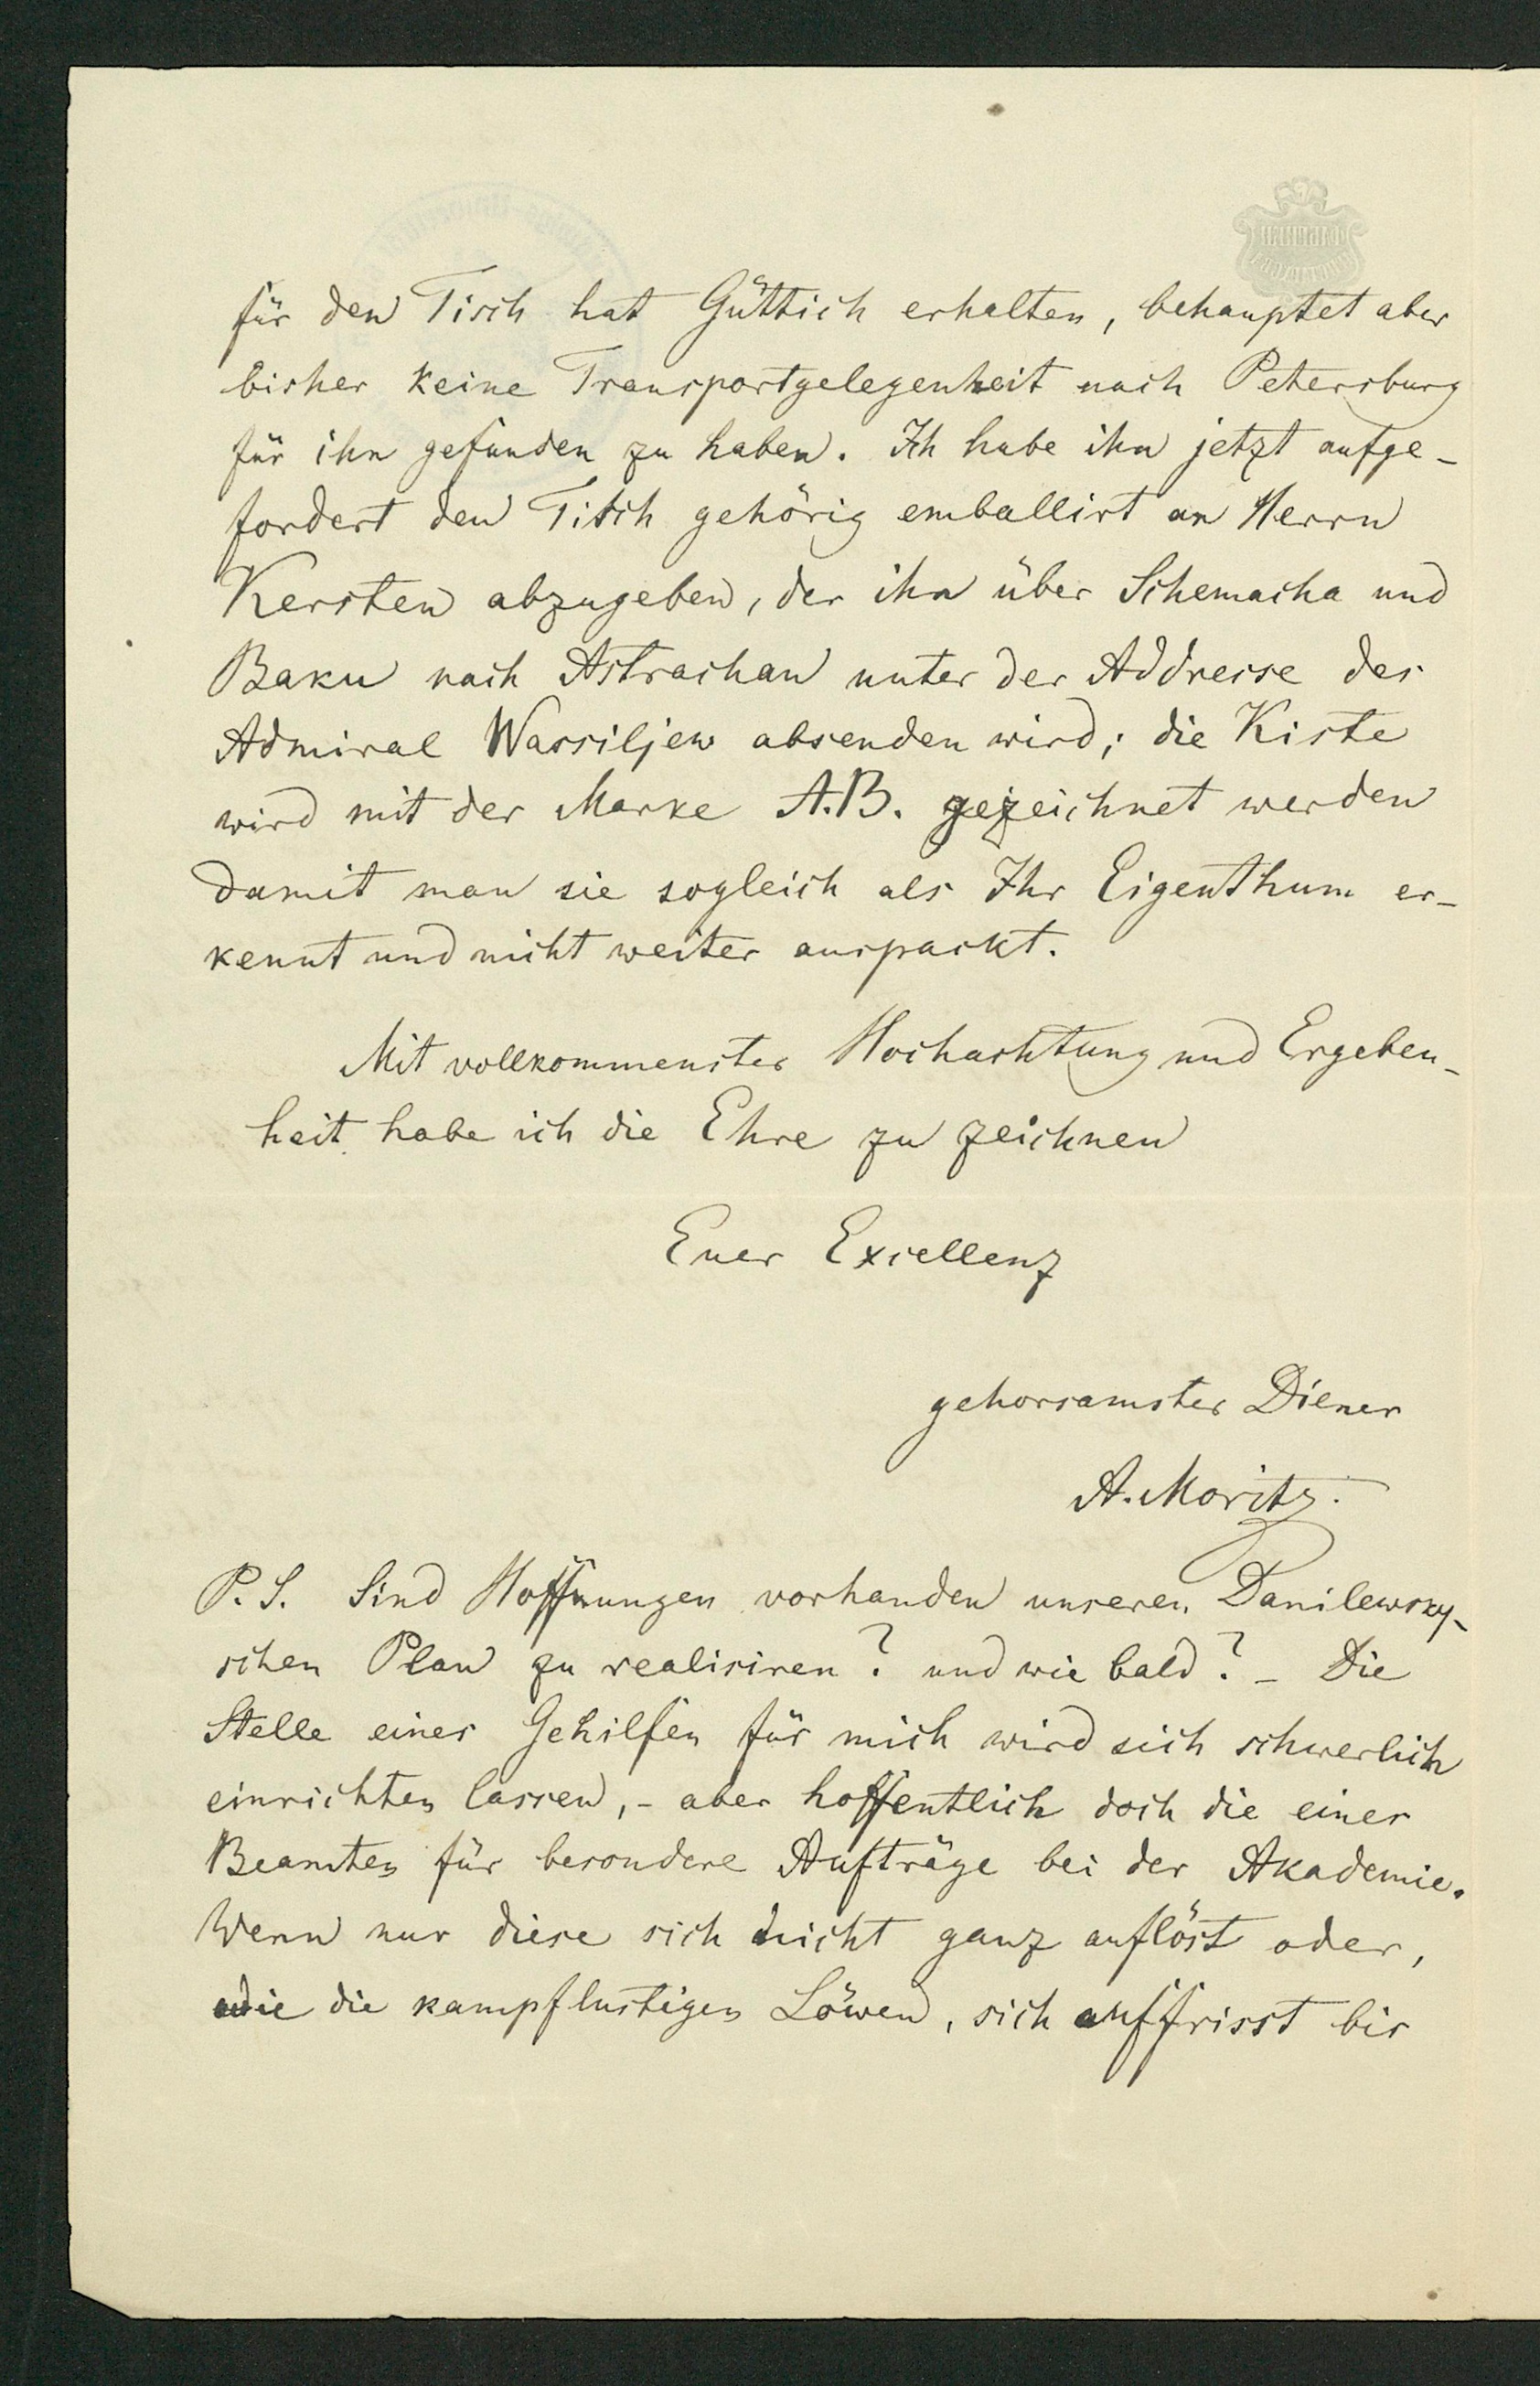 für den Tisch hat Güttich erhalten, behauptet aber
bisher keine Transportgelegenheit nach Petersburg
für ihn gefunden zu haben. Ich habe ihn jetzt aufge-
fordert den Tisch gehörig emballirt an Herrn
Kersten abzugeben, der ihn über Schemacha und
Baku nach Astrachan unter der Addresse des
Admiral Wassiljew absenden wird; die Kiste
wird mit der Marke A.B. gezeichnet werden
damit man sie sogleich als Ihr Eigenthum er-
kennt und nicht weiter auspackt.
Mit vollkommenster Hochachtung und Ergeben-
heit habe ich die Ehre zu zeichnen
Euer Excellenz
gehorsamster Diener
A. Moritz.
P.S. Sind Hoffnungen vorhanden unseren Danilewsky-
schen Plan zu realisiren? und wie bald? - Die
Stelle eines Gehilfen für mich wird sich schwerlich
einrichten lassen, - aber hoffentlich doch die eines
Beamten für besondere Aufträge bei der Akademie.
Wenn nur diese sich nicht ganz auflöst oder,
wie die kampflustigen Löwen, sich auffrisst bis